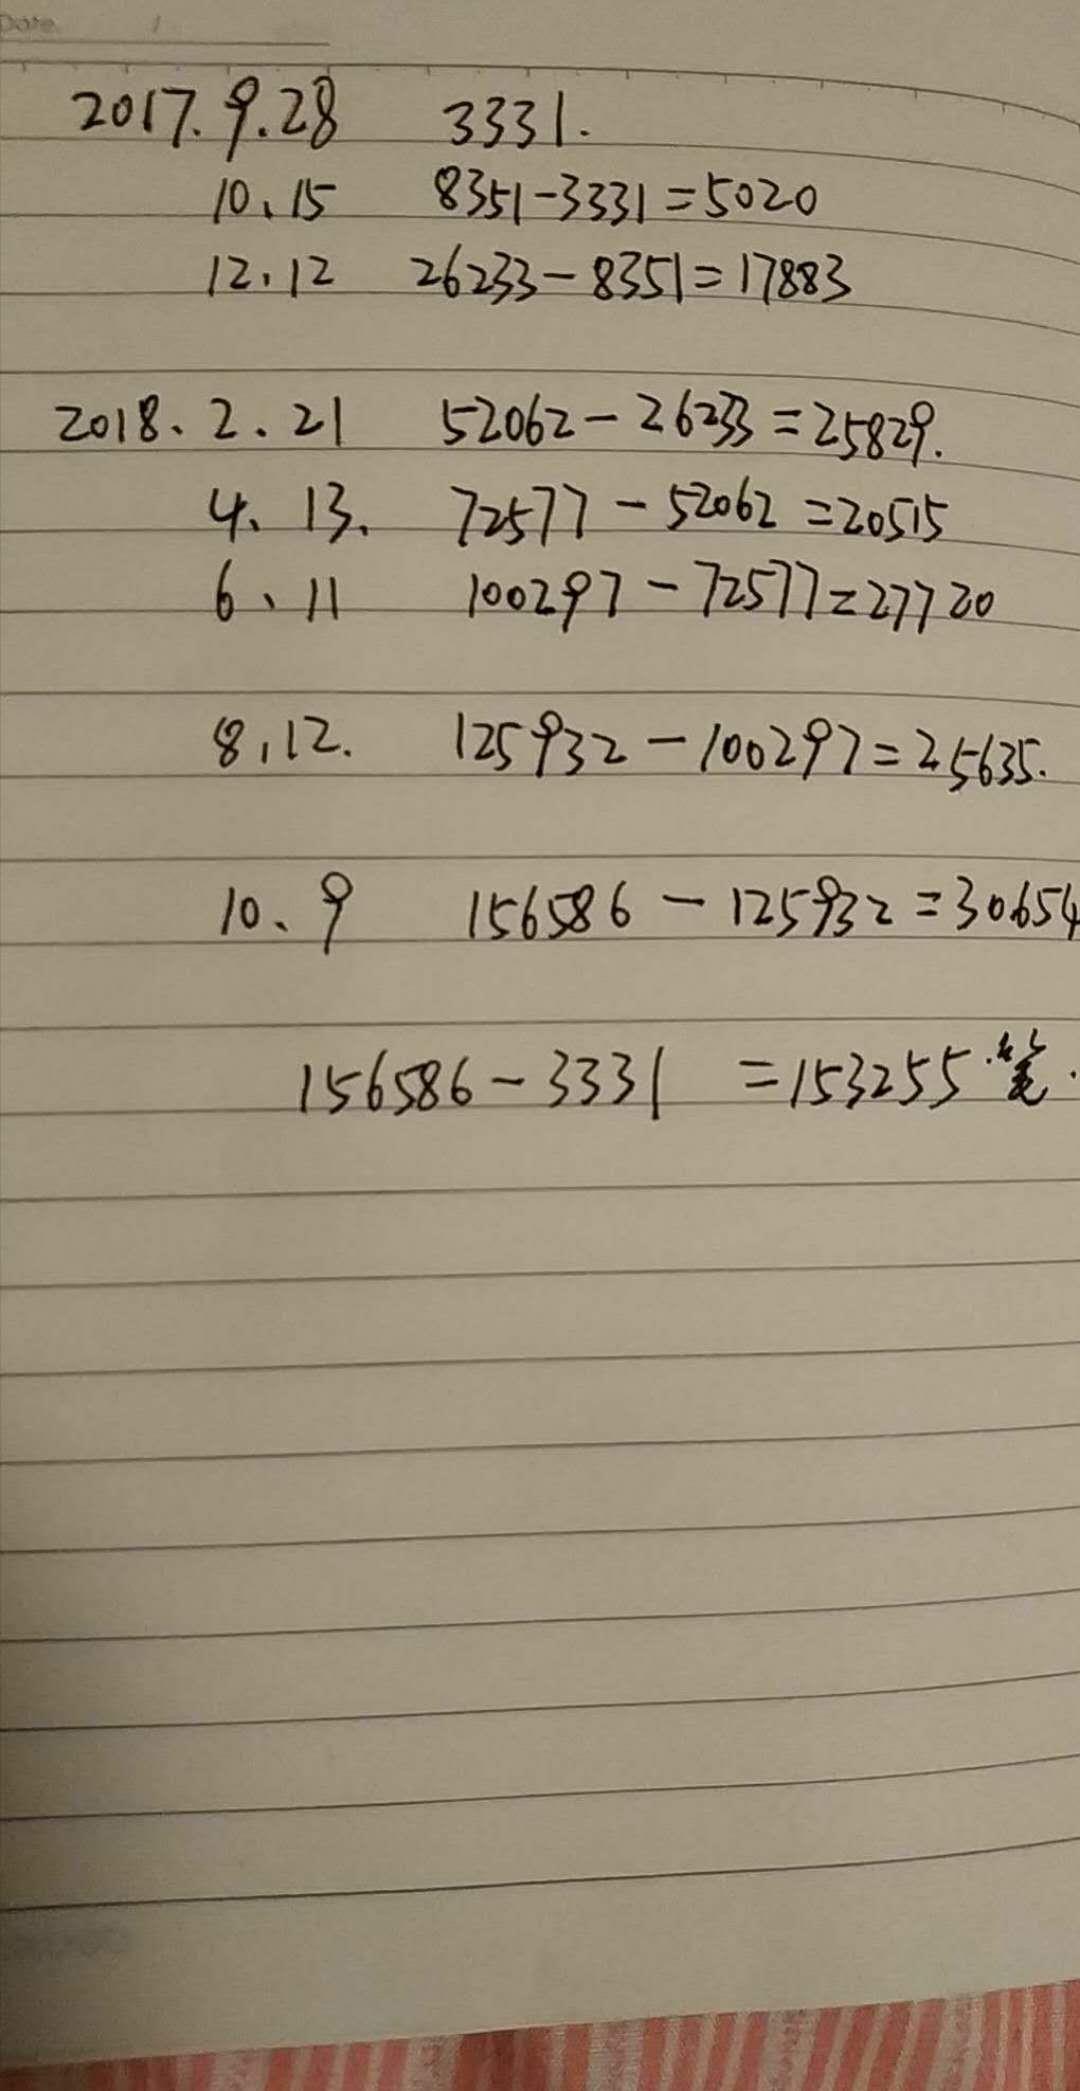 Date /
2017.9.28 3331.
10、15 8351-3331=5020
12.12 26233-8351=17883
2018、2.21 52062-26233=25829.
4、13、 72577-52062=20515
6、11 100297-72577=27720
8,12. 125932-100297=25635.
10、9 156586-125932=30654
156586-3331=153255笔.